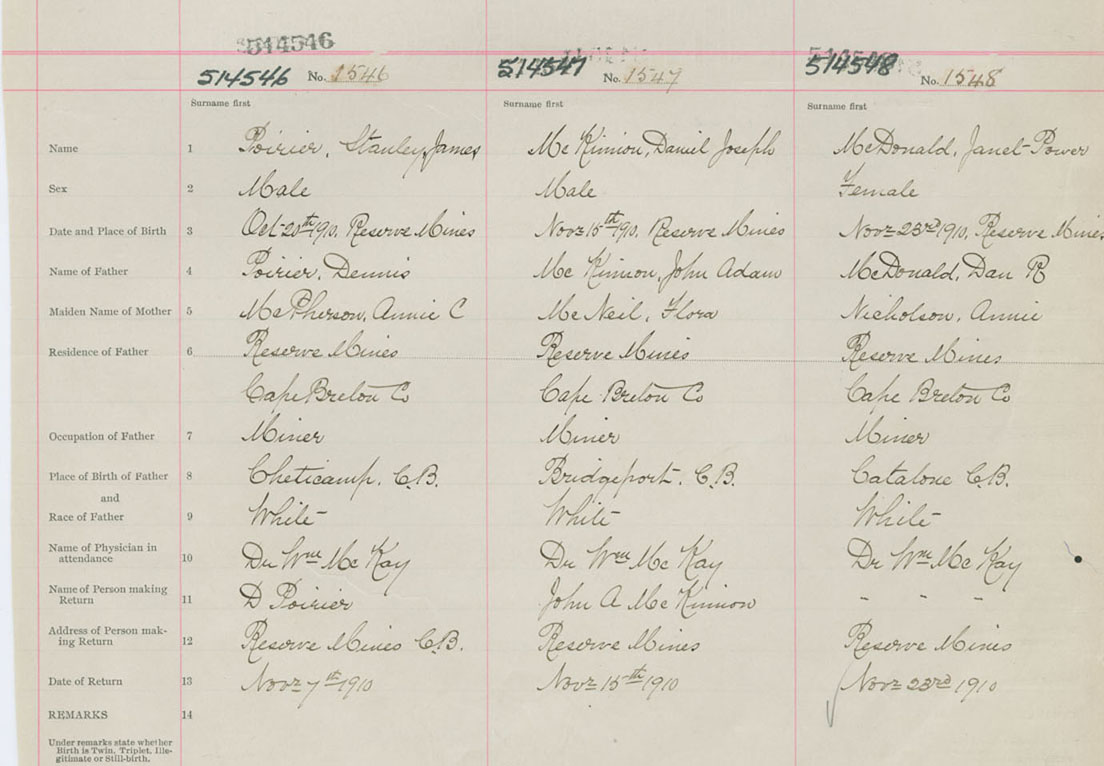 514546
514546 No. 1546 514547 No. 1547 514548 No. 1548
Surname first Surname first Surname first
Name 1 Poirier, Stanley, James Mc Kinnon, Daniel Joseph McDonald, Janet Power
Sex 2 Male Male Female
Date and Place of Birth 3 Oct 20th 1910. Reserve Mines Novr 15th 1910. Reserve Mines Novr 23rd 1910. Reserve Mines
Name of Father 4 Poirier, Dennis Mc Kinnon, John Adam McDonald, Dan R
Maiden Name of Mother 5 McPherson, Annie C Mc Neil, Flora Nicholson, Annie
Residence of Father 6 Reserve Mines Reserve Mines Reserve Mines
Cape Breton Co Cape Breton Co Cape Breton Co
Occupation of Father 7 Miner Miner Miner
Place of Birth of Father 8 Cheticamp. C.B. Bridgeport. C.B. Catalone C.B.
and
Race of Father 9 White White White
Name of Physician in
attendance 10 Dr Wm Mc Kay Dr Wm Mc Kay Dr Wm Mc Kay
Name of Person making
Return 11 D Poirier John A Mc Kinnon " " "
Address of Person mak-
ing Return 12 Reserve Mines C.B. Reserve Mines Reserve Mines
Date of Return 13 Novr 7th 1910 Novr 15th 1910 Novr 23rd 1910
REMARKS 14
Under remarks state whether
Birth is Twin, Triplet, Ille-
gitimate or Still-birth.